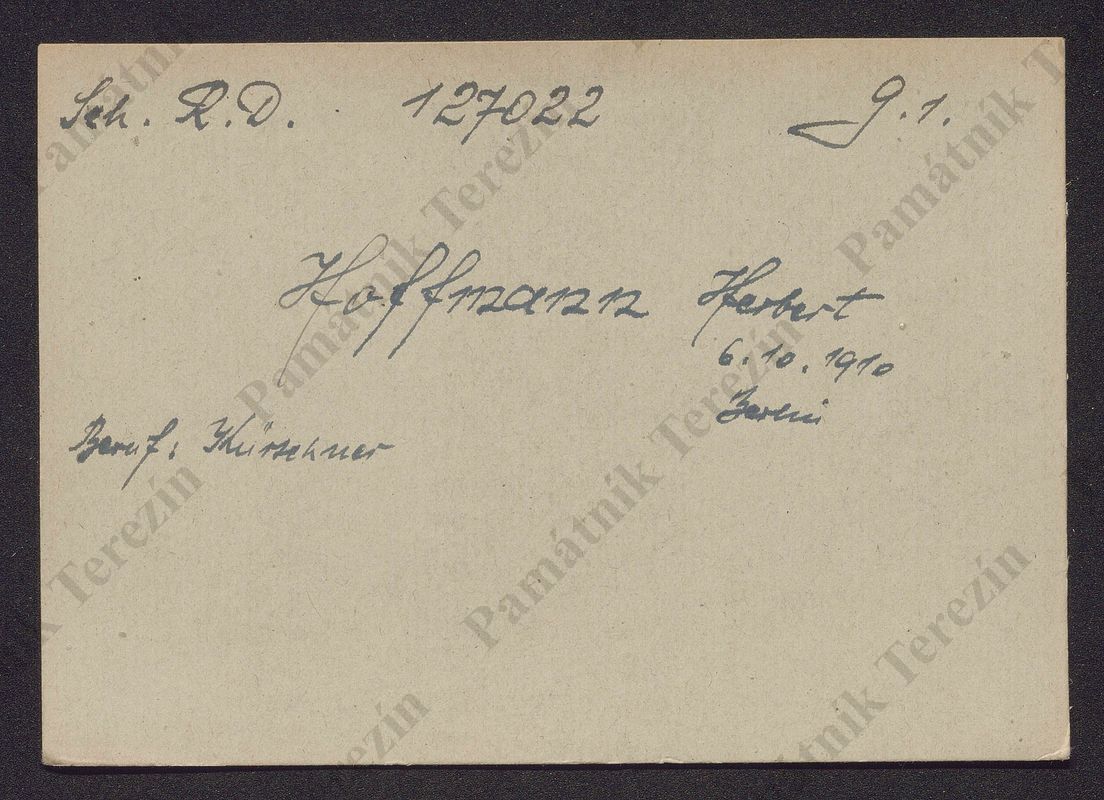 Sch. R.D. 127022 9.1.
Hoffmann Herbert
6.10.1910
Berlin
Beruf: Kürschner
Památník Terezín
Památník Terezín
Památník Terezín
Památník Terezín
Památník Terezín